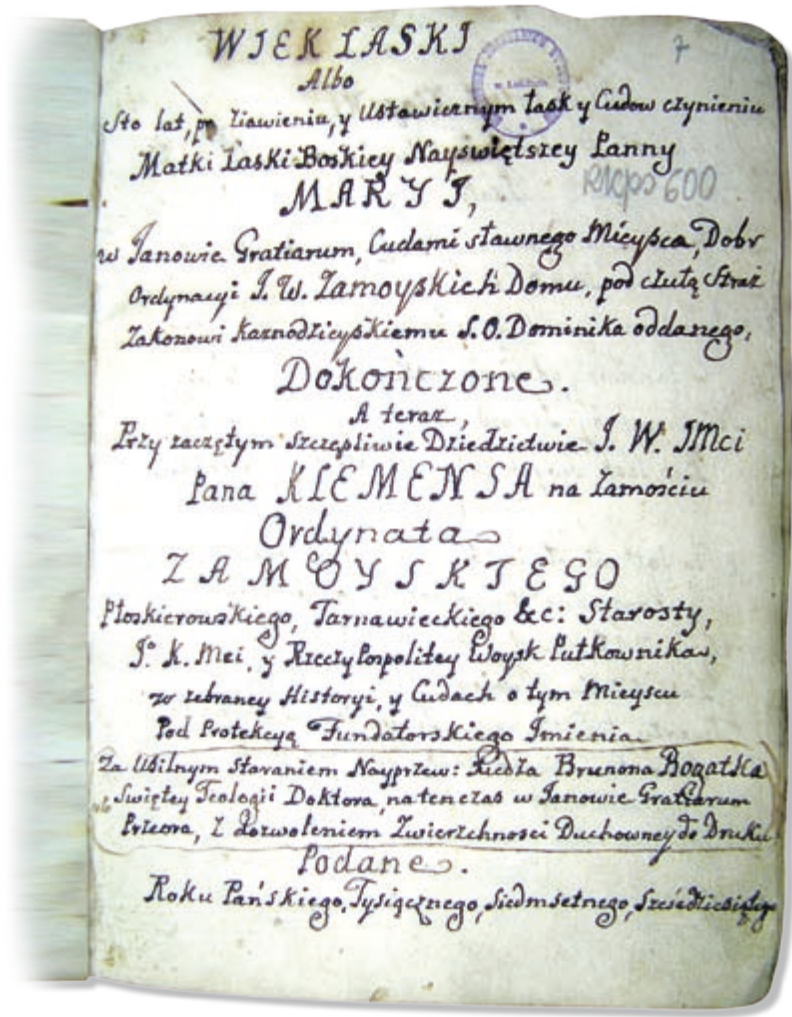 WIEK LASKI
7
Albo
Sto lat, po Ziawieniu, y Ustawicznym Łask y Cudow czynieniu
Matki Laski Boskiey Nayswiętszey Panny
RKps 600
MARYI,
w Janowie Gratiarum, Cudami sławnego Mieysca, Dobr
Ordynacyi J. W. Zamoyskich Domu, pod czułą Straż
Zakonowi Kaznodzieyskiemu S. O. Dominika oddanego,
Dokończone.
A teraz,
Przy zaczętym Szczęsliwie Dziedzictwie J. W. JMci
Pana KLEMENSA na Zamościu
Ordynata
ZAMOYSKIEGO
Płoskierowskiego, Tarnawieckiego &c: Starosty,
J. K. Mci, y Rzeczy Pospolitey Woysk Pułkownika,
ze zebraney Historyi, y Cudach o tym Mieyscu
Pod Protekcyą Fundatorskiego Imienia
Za Usilnym Staraniem Nayprzew: Xiędza Brunona Bogatka
Swiętey Teologii Doktora, na ten czas w Janowie Gratiarum
Przeora, Z dozwoleniem Zwierzchnosci Duchowney do Druku
Podane.
Roku Pańskiego, Tysiącznego, Siedmsetnego, Sześćdziesiątego